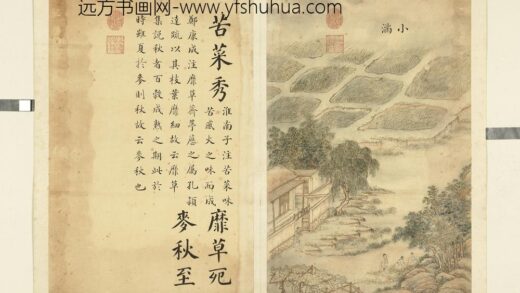 远方书画网-www.yfshuhua.com
小滿
苦菜秀
淮南子注苦菜味
苦感火之味而成
靡草死
鄭康成注靡草薺葶藶之屬孔穎
達疏以其枝葉靡細故云靡草
麥秋至
集說秋者百穀成熟之期此於
時雖夏於麥則秋故云麥秋也